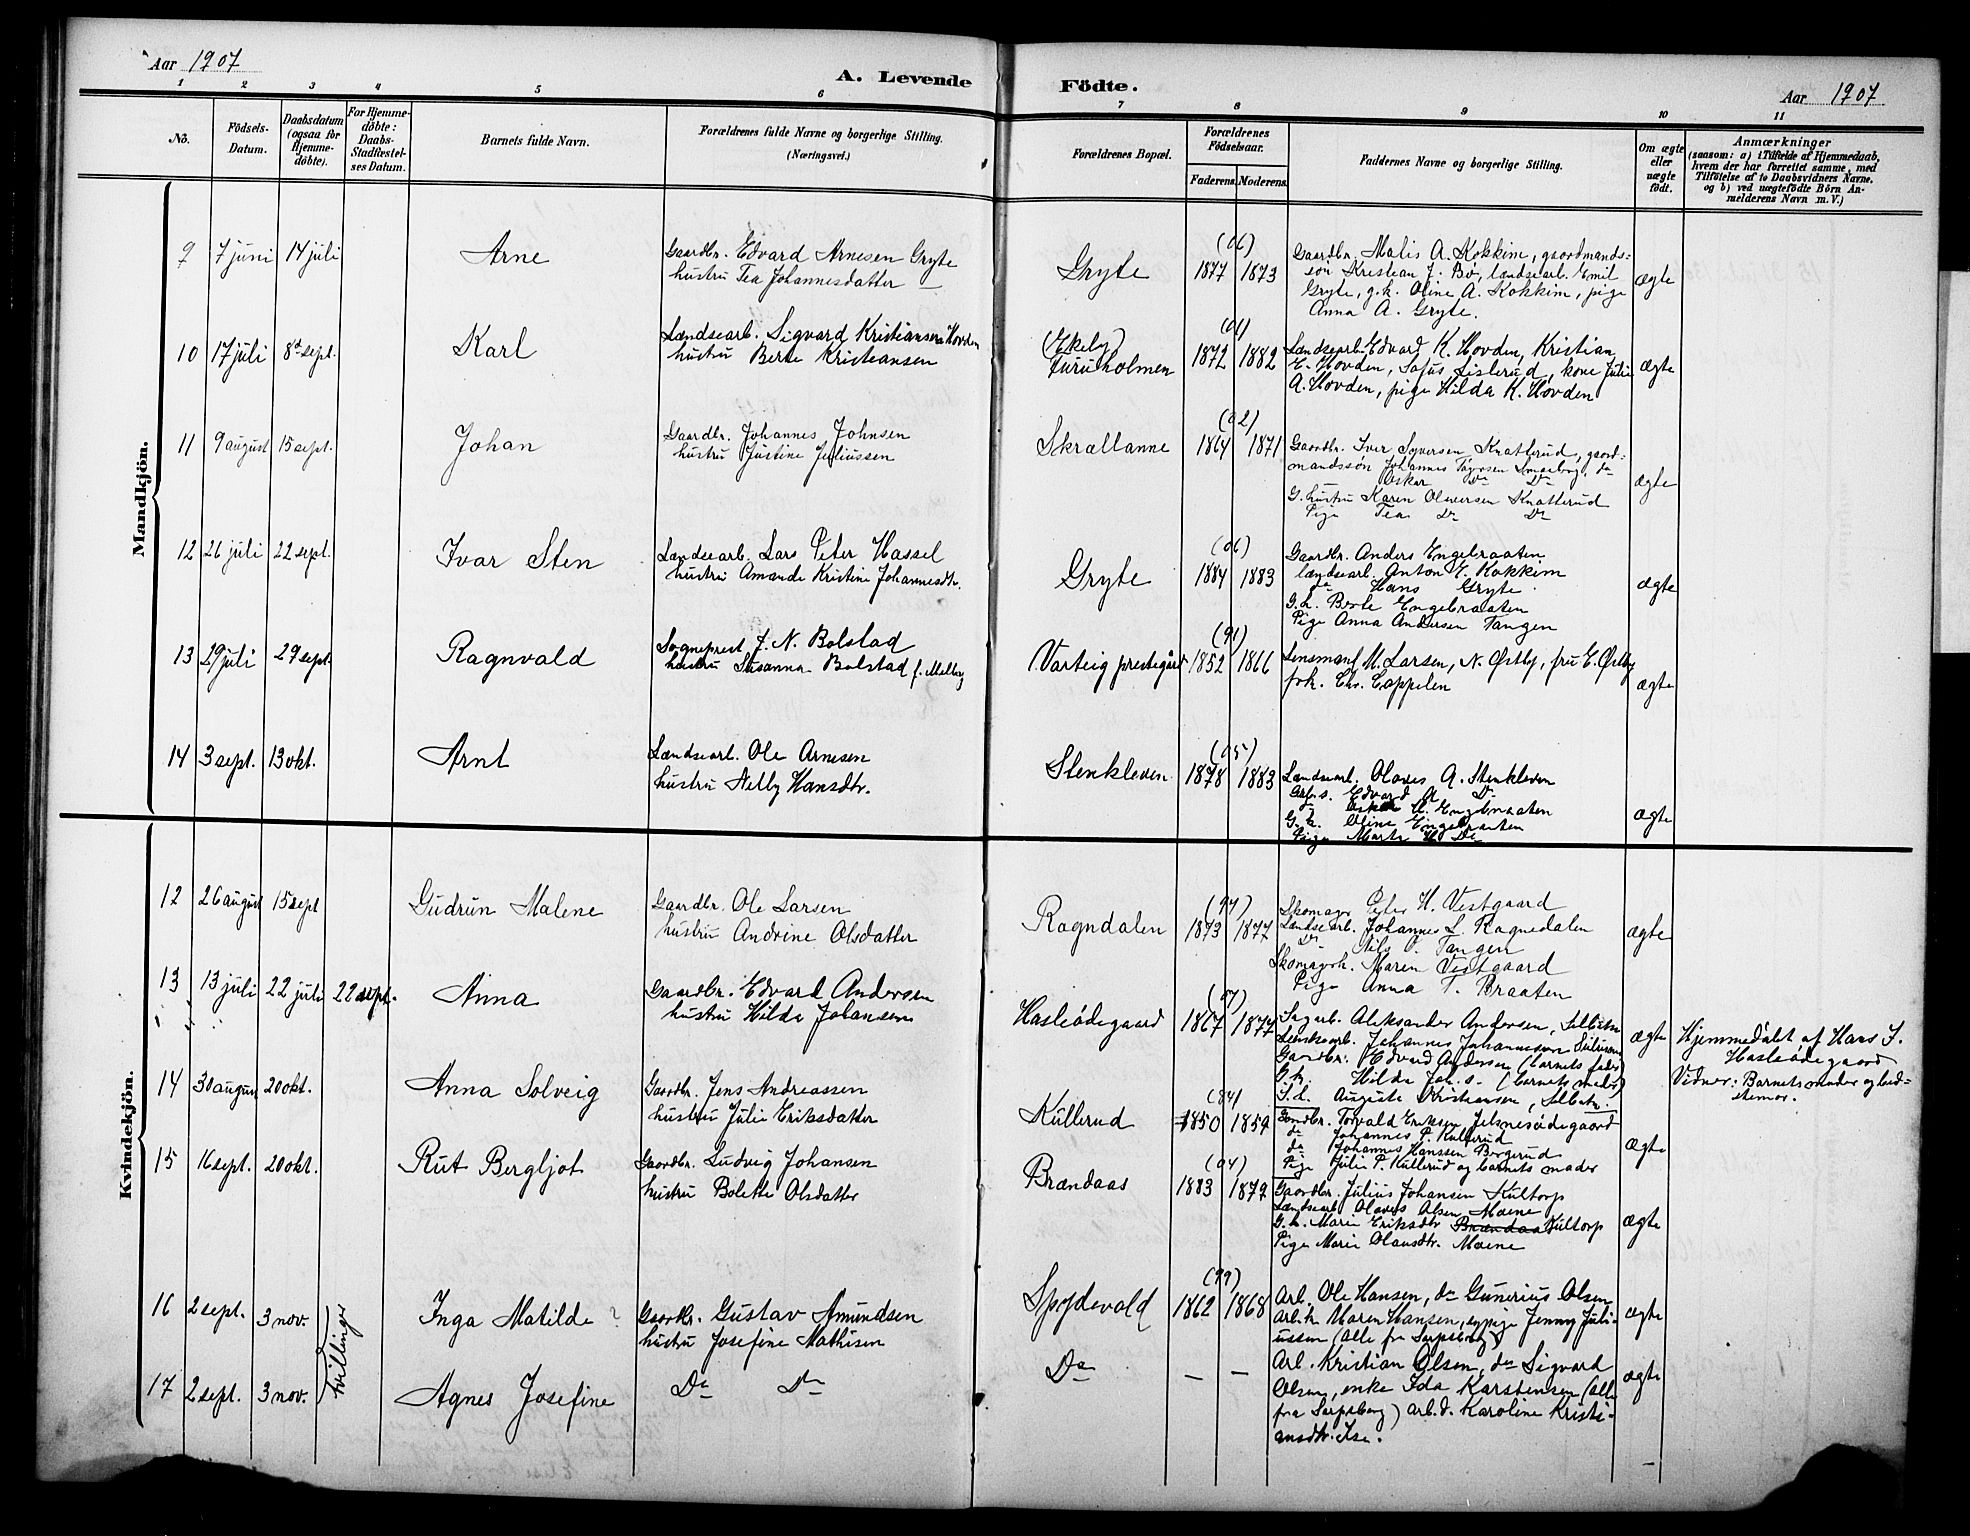 Aar 1907
A. Levende Födte.
Aar 1907
1 2 3 4 5 6 7 8 9 10 11
Nö.
Födsels-Datum.
Daabsdatum (ogsaa for Hjemme-döbte).
For Hjemme-döbte: Daabs-Stadfæstel-ses Datum.
Barnets fulde Navn.
Forældrenes fulde Navne og borgerlige Stilling.
(Næringsvei.)
Forældrenes Bopæl.
Forældrenes Födselsaar.
Faderens. Moderens.
Faddernes Navne og borgerlige Stilling.
Om ægte eller uægte födt.
Anmærkninger
(saasom: a) i Tilfælde af Hjemmedaab,
hvem der har forrettet samme, med
Tilföielse af to Daabsvidners Navne.
og b) ved uægtefödte Börn An-
melderens Navn m.V.)
Mandkjön.
9 7 juni 14 juli Arne
Gaardbr. Edvard Arnesen Gryte
hustru Tea Johannesdatter
Gryte (06) 1877 1873
Gaardbr. Matis A. Kokkim, gaardmands-
søn Kristian J. Bø, landsearb. Emil
Gryte, g.k. Oline A. Kokkim, pige
Anna A. Gryte.
ægte
10 17 juli 8de sept. Karl
Landsearb. Sigvard Kristiansen Hovden
hustru Berte Kristiansen
(Ekely) Furuholmen 1872 1882
Landsearb. Edvard K. Hovden, Kristian
E. Hovden, Sofus Lislerud, kone Julie
A. Hovden, pige Hilda K. Hovden
ægte
11 9 august 15 sept. Johan
Gaardbr. Johannes Johnsen
hustru Justine Juliussen
Skrællanne (02) 1864 1871
Gaardbr. Iver Syversen Knatterud, gaard-
mandssøn Johannes
Oskar Do Do
G. hustru Karen Knatterud
Pige Tea Do Do
ægte
12 26 juli 22 sept. Ivar Sten
Landsearb. Lars Peter Hassel
hustru Amanda Kristine Johannesdtr.
Gryte (06) 1884 1883
Gaardbr. Anders Engebraaten
landsearb. Anton E. Kokkim
do Hans Gryte
G.k. Berte Engebraaten
Pige Anna Andersen Tangen
ægte
13 29 juli 29 sept. Ragnvald
Sogneprest J. N. Bolstad
hustru Susanna Bolstad f. Malberg
Varteig prestegård (91) 1852 1866
Lensmand M. Larsen, N. Østby, fru E. Østby
frk. Chr. Cappelen
ægte
14 3 sept. 13 okt. Arnt
Landsearb. Ole Arnesen
hustru Nelly Hansdtr.
Stenkleven (05) 1878 1883
Landsearb. Olaves A. Stenkleven
Gbr.s. Edvard A. Do
do Oskar H. Engebraaten
G.k. Oline Engebraaten
Pige Marte H. Do
ægte
Kvindekjön.
12 26 august 15 sept Gudrun Malene
Gaardbr. Ole Larsen
hustru Andrine Olsdatter
Ragndalen (97) 1873 1877
Skomager Peter H. Vestgaard
Landsearb. Johannes L. Ragnedalen
Do Nils O. Tangen
Skomagerk. Maren Vestgaard
Pige Anna T. Braaten
ægte
13 13 juli 22 juli 22 sept. Anna
Gaardbr. Edvard Andersen
hustru Hilda Johansen
Hasleödegaard (07) 1867 1877
Sagarb. Aleksander Andersen,
Landsearb. Johannes Johannesen
Gaardbr. Edvard Andersen (barnets fader)
G.k. Hilda Joh.s. (barnets moder)
Auguste Kristiansen,
ægte
Hjemmedøbt af Hans J.
Hasleødegaard
Vidner: Barnets moder og bed-
stemor.
14 30 august 20 okt. Anna Solveig
Gaardbr. Jens Andreassen
hustru Julie Eriksdatter
Kullerud (84) 1850 1859
Gaardbr. Torvald Eriksen Jelsnesödegaard
do Johannes P. Kullerud
do Johannes Hanssen Borgerud
Pige Julie P. Kullerud og barnets moder
ægte
15 16 sept. 20 okt. Rut Bergljot
Gaardbr. Ludvig Johansen
hustru Bolette Olsdatter
Brændaas (04) 1883 1879
Gaardbr. Julius Johansen Kultorp
Landsearb. Olaves Olsen Moene
G.k. Marie Eriksdtr Brændaas Kultorp
Pige Marie Olausdtr. Moene
ægte
16 2 sept. 3 nov. tvillinger Inga Matilde
Gaardbr. Gustav Amundsen
hustru Josefine Mathisen
Spydevold (99) 1862 1868
Arb. Ole Hansen, do Gunerius Olsen
arb.k. Maren Hansen, sypige Jenny Juli-
ussen (alle fra Sarpsborg)
ægte
17 2 sept. 3 nov. Agnes Josefine
Do Do
Do — —
Arb. Kristian Olsen, do Sigvard
Olsen, enke Ida Karstensen (alle
fra Sarpsborg) arb.d. Karoline Kristi-
ansdtr. Ise.
ægte